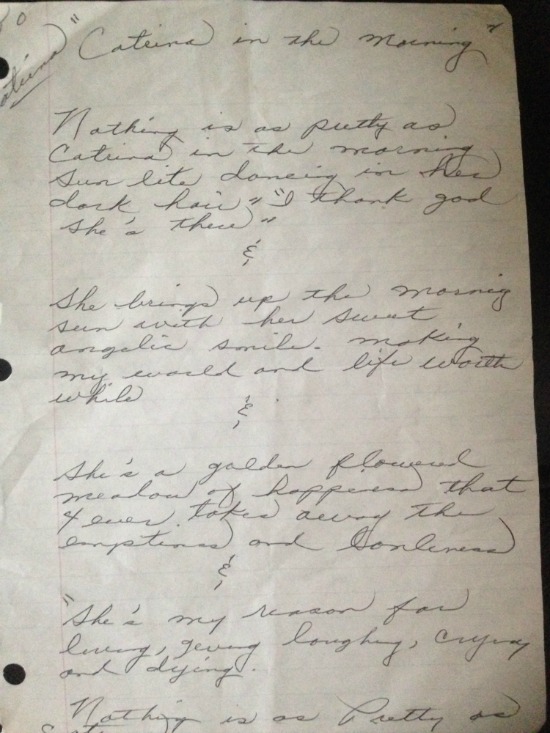 "Catrina in the Morning"
Nothing is as pretty as
Catrina in the morning
sun lite dancing in her
dark hair "I thank god
she's there"
&
She brings up the mornig
sun with her sweet
angelic smile. making
my world and life worth
while
&
She's a golden flowered
meadow of happeness that
4 ever takes away the
emptiness and lonliness
&
"She's my reason for
living, giving laughing, crying
and dying.
Nothing is as Pretty as